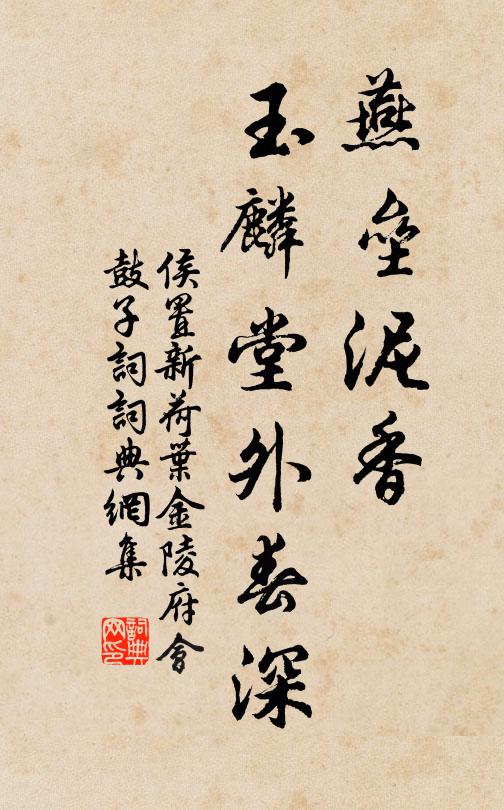 燕壘泥香
玉麟堂外春深
侯置新荷葉金陵府會
鼓子詞詞典網集
詞典網印